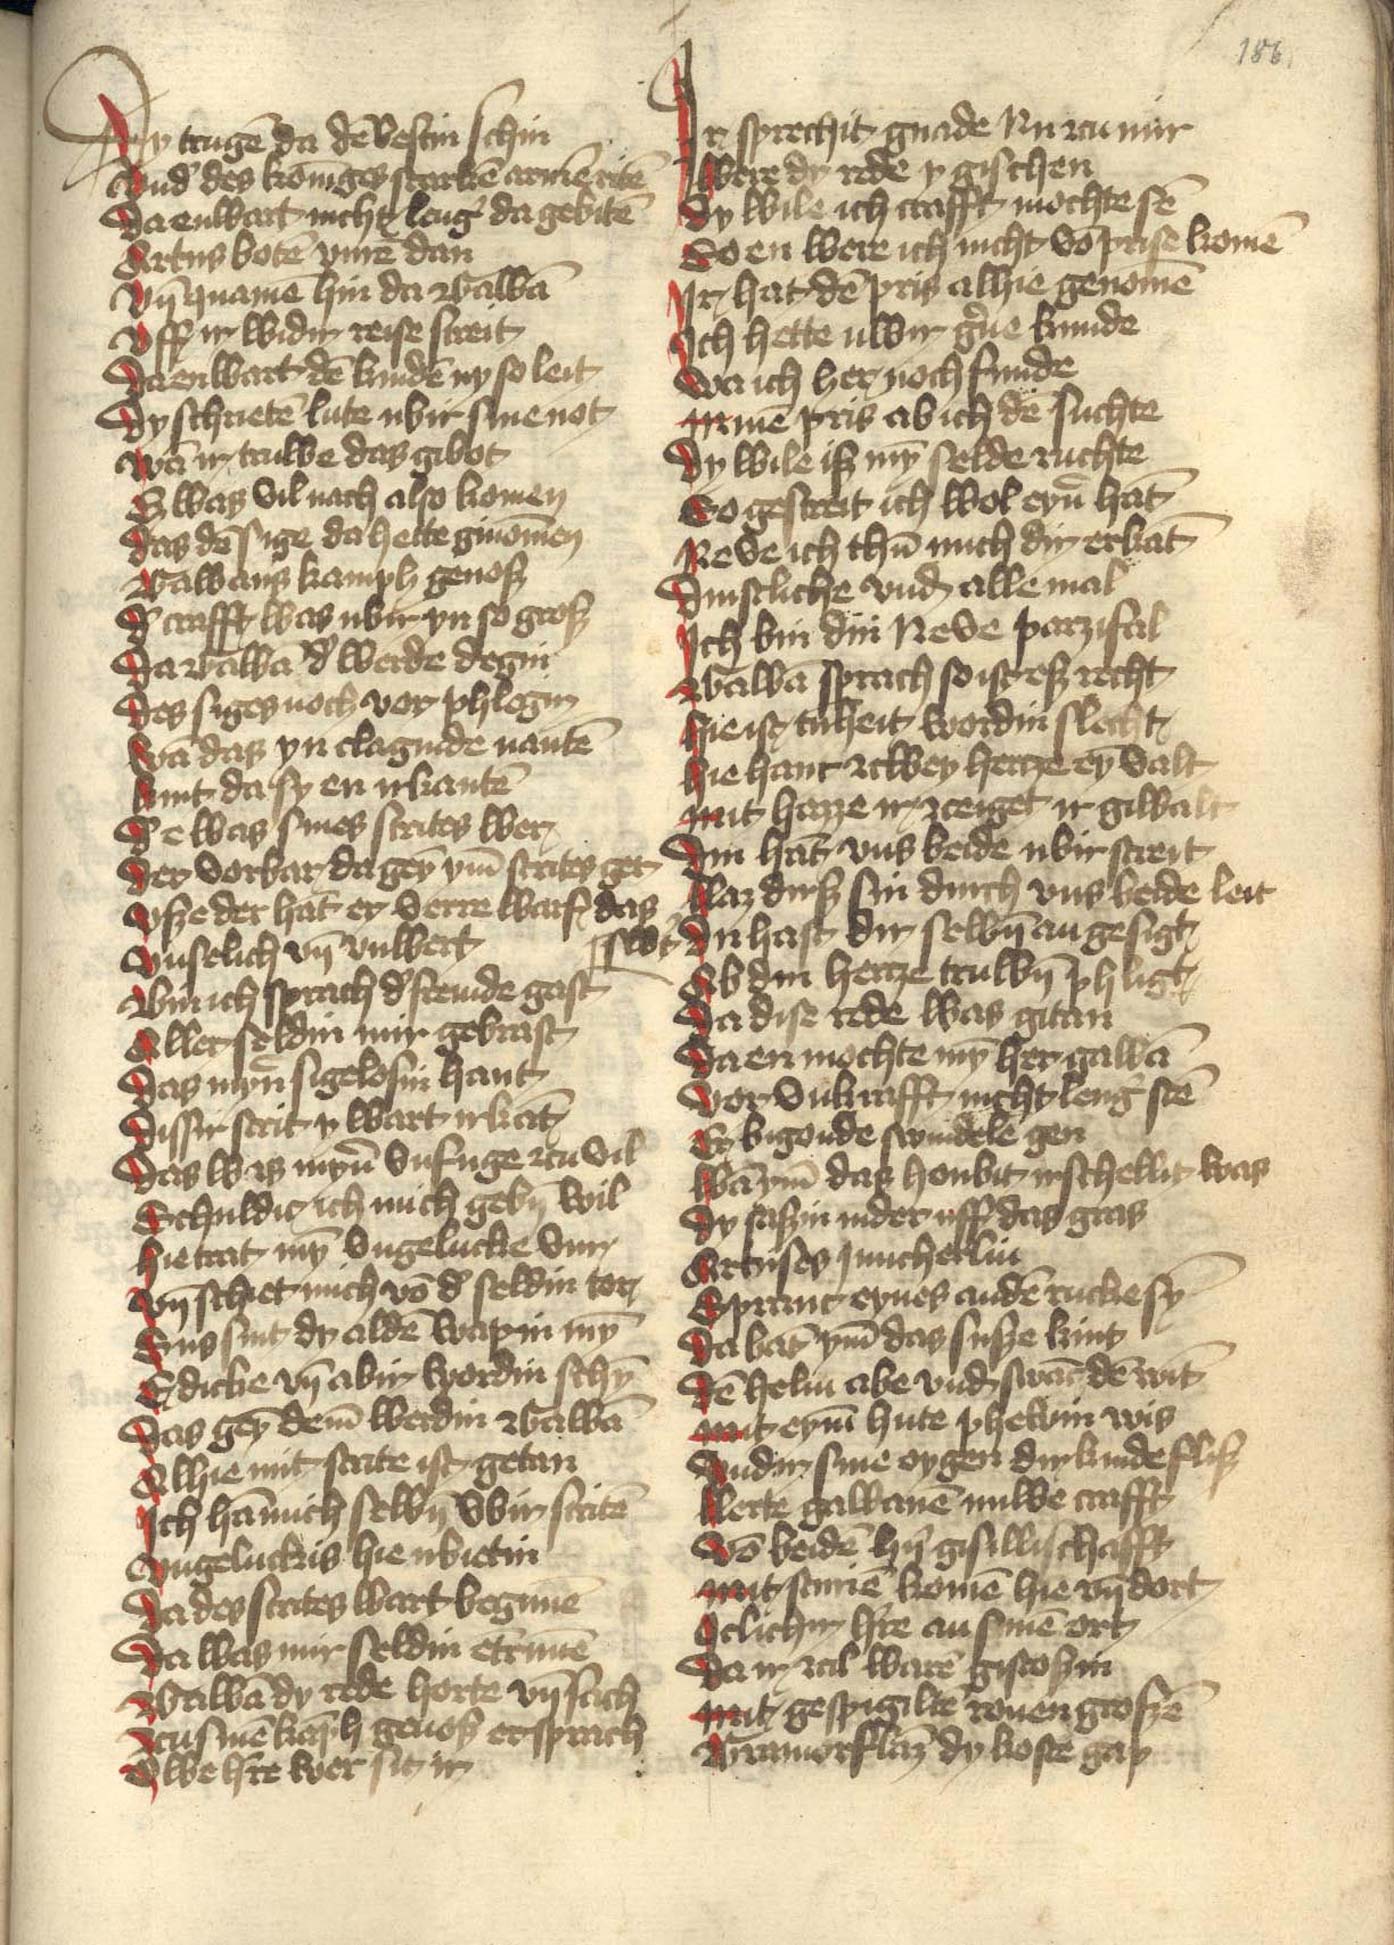 186
Dy trugē da dē vestin schin
Vnd des koniges starkē armē ritē
Da enwart nicht leng̕ da gebitē
Artus botē vure dan
Vn̄ quamē hin da Gawā
Vff ir widir reise streit
Da enwart dē kindē ny so leit
Dy schrietē lute vbir sine not
Wā ir truwe das gibot
Es was vil nach also komen
Das dē sige da hette ginomen
Gawans kamph genosz
D̕ crafft was vbir yn so grosz
Da Gawā d̕ werde degin
Des siges noch vor phlegin
Wā das yn clagnde nantē
Kint da sy en irkantē
D̕ e was sines strites wer
Der vorbar da gen̄ ym̄ strites ger
Vsze der hāt er verre warf das
swert
Vnselich vn̄ vnwert
Bin ich sprach d̕ fremde gast
Aller seldin mir gebrast
Das myn̄ sigelosin hant
Dissir strit y wart irkāt
Das was myn̄ vnfuge zcu vil
Schuldic ich mich gebin̄ wil
Hie trat my̅ vngelucke vur
Vn̄ schiet mich vō d̕ seldin tor
Sus sint dy aldē wapin my̅
E dicke vn̄ abir wordin schy̅
Das gen̄ dem̄ werdin Gawā
Alhie mit strite ist getan
Ich hā mich selbin̄ vbir stritē
Vngeluckis hie irbietin
Da des strites wart begunē
Da was mir seldin ētrunē
Gawā dy rede horte vn̄ sach
Zcu sinē kāph genosz er sprach
Owe h̕re wer sit ir
Ir sprechit gnade Nu zcu mir
Were dy rede y gischen
Dy wile ich crafft mochte sē
So en were ich nicht vō prise komē
Ir hat dē pris alhie genomē
Ich hette uwir g̕ne kunde
Wa ich her noch funde
Minē pris ab ich dē suchte
Dy wile isz my̅ selde ruchte
So gestreit ich wol eyn̄ hāt
Neve ich thū mich dir erkāt
Dinstliche vnd alle mal
Ich bin din Neve parzifal
Gawā sprach so ist esz recht
Hie ist tūheit wordin slecht
Hie hant zcwey hertze ey̅ valt
Mit hazze ir zceiget ir giwalt
Din hāt vns beide vbir streit
Laz dirsz sin durch vns beide leit
Du hast dir selbin̄ an gesigt
Ab din hertze truwin̄ phligt
Da dise rede was gitan
Da en mochte my̅ her gawā
Vor vnkrafft nicht leng̕ stē
Er bigonde swindele gen
Wā ym̄ das houbit irschellit was
Dy saszin nider uff das gras
Artuses Juncherlin
Sprant eynes andē rucke sy̅
Da bāt ym̄ das susze kint
Dē helm abe vnd swāc dē wīt
Mit eym̄ hute phewin wis
Vndir sine oygen dy kinde flisz
Lerte gawanē nuwe crafft
Vō beidē h̕n gisillischafft
Mit sturiē komē hie vn̄ dort
Iclichir h̕re an sinē ort
Da ir zcil warē gistoszin
Mit gespigiltē ronen groszē
Gramorflāz dy koste gap